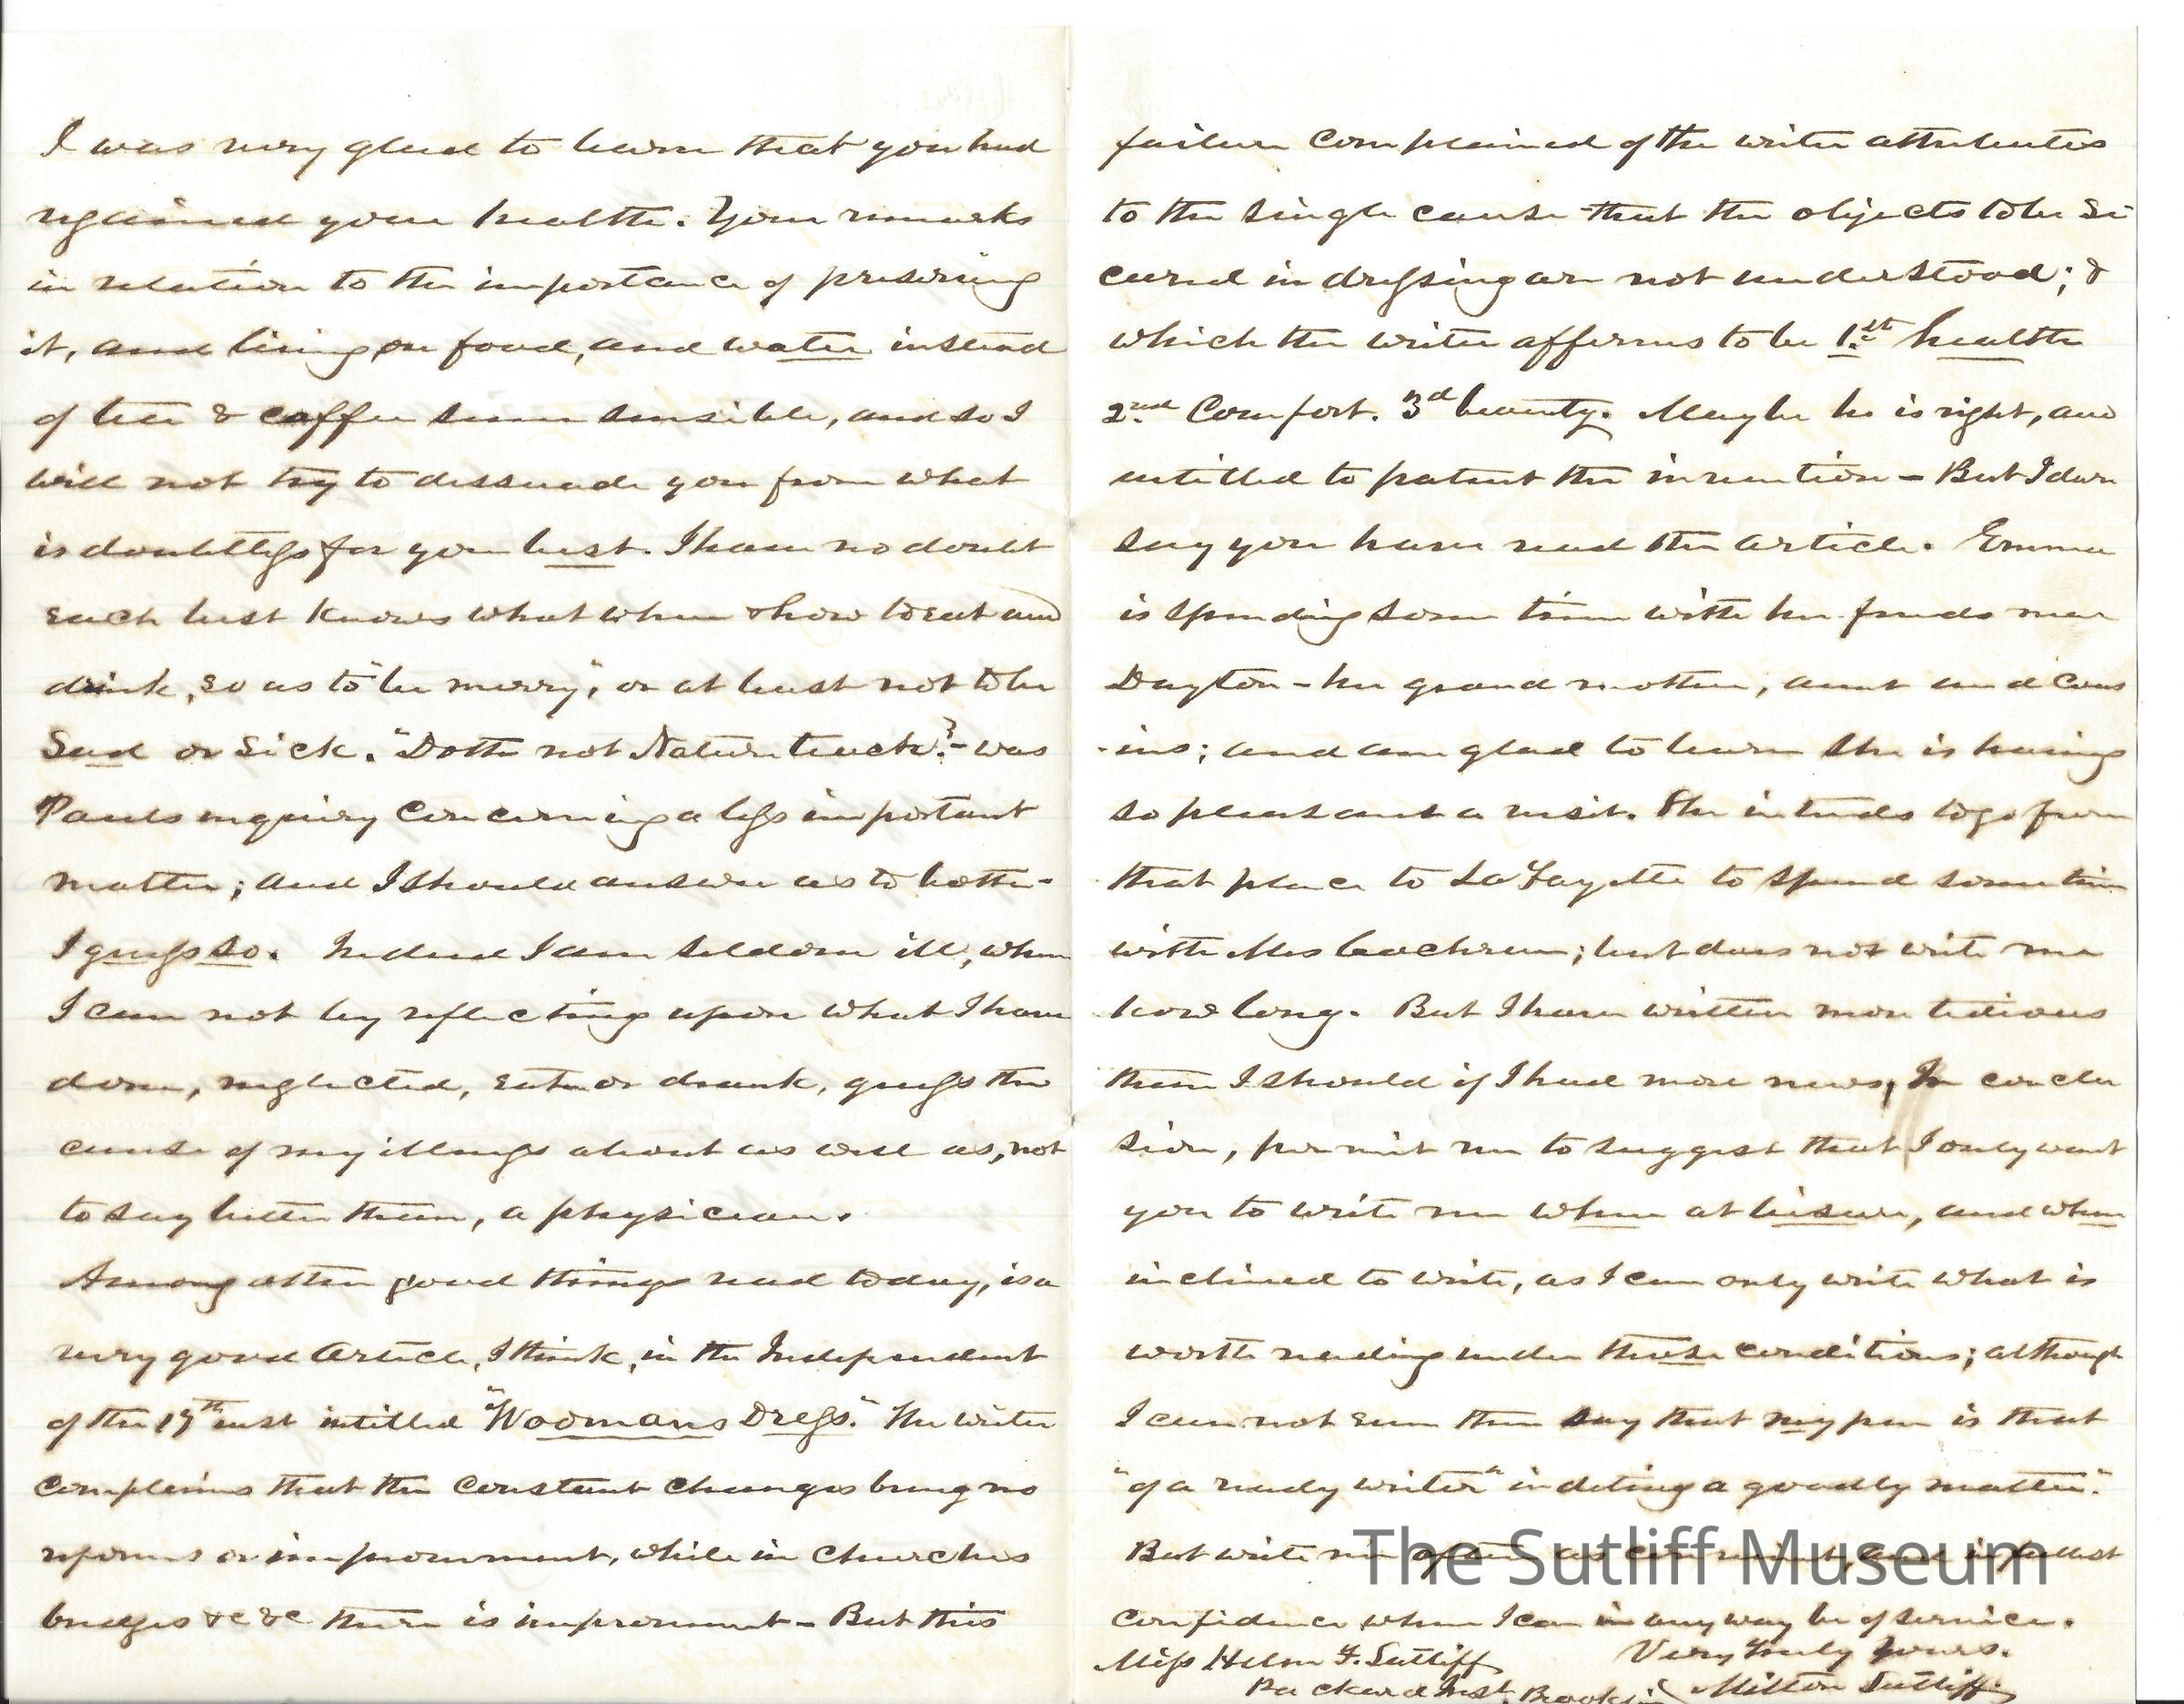 I was very glad to learn that you had
regained your health. Your remarks
in relation to the importance of preserving
it, and living on food, and water instead
of tea & coffee seem sensible, and so I
will not try to dissuade you from what
is doubtless for you best. I have no doubt
each best knows what when & how to eat and
drink, so as to "be merry", or at least not to be
Sad or Sick. "Doth not Nature teach?" - was
Pauls enquiry concerning a less important
matter; and I should answer as to both -
I guess so. Indeed I am seldom ill, when
I can not by reflecting upon what I have
done, neglected, eat or drank, guess the
cause of my illness about as well as, not
to say better than, a physician.
Among other good things read today, is a
very good Article, I think, in the Independent
of the 19th inst intitled "Woomans Dress." The writer
complains that the constant changes bring no
reforms or improvement, while in Churches
bridges &c &c there is improvement - But this
failure complained of the writer attributes
to the single cause that the objects to be se
cured in dressing are not understood; &
which the writer afferms to be 1.st health
2.nd Comfort. 3d beauty. Maybe he is right, and
intitled to patent the invention - But I dare
say you have read the article. Emma
is spending some time with her friends near
Dayton - her grand mother, aunt and Cous
-ins; and am glad to learn she is having
so pleasant a visit. She intends to go from
that place to LaFayette to spend some time
with Mrs Cochran; but does not write me
how long. But I have written more tedious
than I should if I had more news, In conclu
sion, permit me to suggest that I only want
you to write me when at leisure, and when
inclined to write, as I can only write what is
worth reading under those conditions; although
I can not even then say that my pen is that
"of a ready writer" in diting a goodly matter."
But write me often as convenient, and in fullest
confidence when I can in any way be of service.
Very truly yours.
Miss Helen F. Sutliff
Milton Sutliff
Packard Inst. Brooklin
The Sutliff Museum